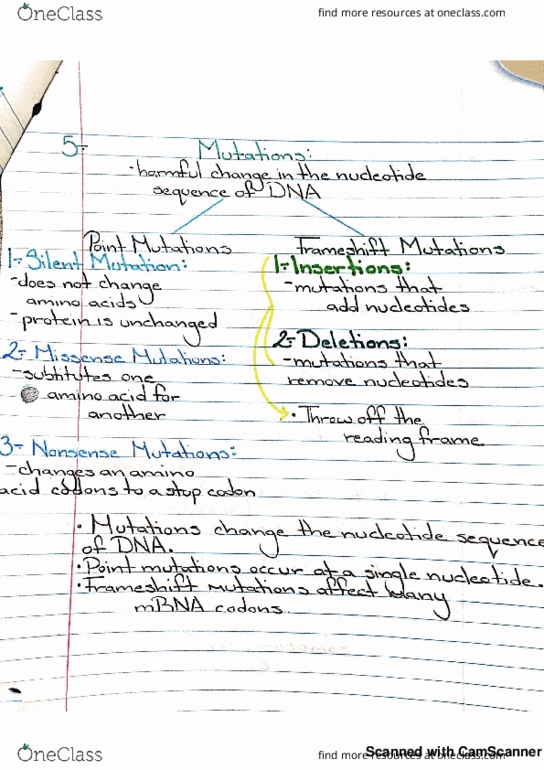 OneClass
find more resources at oneclass.com
5-
Mutations:
-harmful change in the nucleotide
sequence of DNA
Point Mutations
1-Silent Mutation:
-does not change
amino acids
-protein is unchanged
2- Missense Mutations:
-subtitutes one
amino acid for
another
3- Nonsense Mutations:
-changes an amino
acid codons to a stop codon
Frameshift Mutations
1-Insertions:
-mutations that
add nucleotides
2-Deletions:
-mutations that
remove nucleotides
• Throw off the
reading frame
• Mutations change the nucleotide sequence
of DNA.
• Point mutations occur at a single nucleotide.
• Frameshift mutations affect many
mRNA codons.
OneClass
find more resources at oneclass.com
Scanned with CamScanner